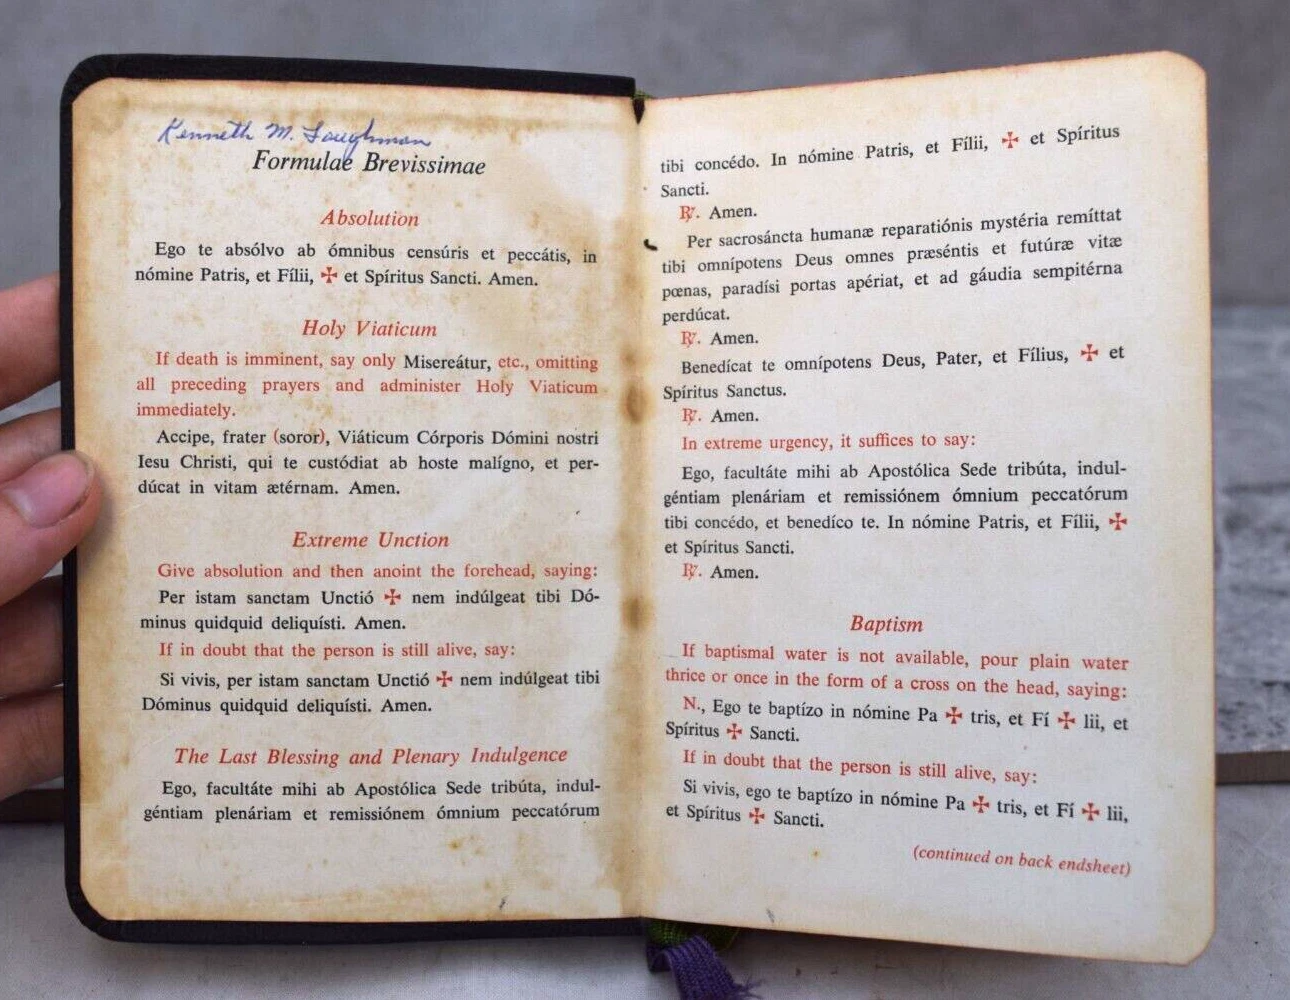 Kenneth M. Loughman
Formulae Brevissimae
Absolution
Ego te absólvo ab ómnibus censúris et peccátis, in
nómine Patris, et Fílii, ✠ et Spíritus Sancti. Amen.
Holy Viaticum
If death is imminent, say only Misereátur, etc., omitting
all preceding prayers and administer Holy Viaticum
immediately.
Accipe, frater (soror), Viáticum Córporis Dómini nostri
Iesu Christi, qui te custódiat ab hoste malígno, et per-
dúcat in vitam ætérnam. Amen.
Extreme Unction
Give absolution and then anoint the forehead, saying:
Per istam sanctam Unctió ✠ nem indúlgeat tibi Dó-
minus quidquid deliquísti. Amen.
If in doubt that the person is still alive, say:
Si vivis, per istam sanctam Unctió ✠ nem indúlgeat tibi
Dóminus quidquid deliquísti. Amen.
The Last Blessing and Plenary Indulgence
Ego, facultáte mihi ab Apostólica Sede tribúta, indul-
géntiam plenáriam et remissiónem ómnium peccatórum
tibi concédo. In nómine Patris, et Fílii, ✠ et Spíritus
Sancti.
℟. Amen.
Per sacrosáncta humanæ reparatiónis mystéria remíttat
tibi omnípotens Deus omnes præséntis et futúræ vitæ
pœnas, paradísi portas apériat, et ad gáudia sempitérna
perdúcat.
℟. Amen.
Benedícat te omnípotens Deus, Pater, et Fílius, ✠ et
Spíritus Sanctus.
℟. Amen.
In extreme urgency, it suffices to say:
Ego, facultáte mihi ab Apostólica Sede tribúta, indul-
géntiam plenáriam et remissiónem ómnium peccatórum
tibi concédo, et benedíco te. In nómine Patris, et Fílii, ✠
et Spíritus Sancti.
℟. Amen.
Baptism
If baptismal water is not available, pour plain water
thrice or once in the form of a cross on the head, saying:
N., Ego te baptízo in nómine Pa ✠ tris, et Fí ✠ lii, et
Spíritus ✠ Sancti.
If in doubt that the person is still alive, say:
Si vivis, ego te baptízo in nómine Pa ✠ tris, et Fí ✠ lii,
et Spíritus ✠ Sancti.
(continued on back endsheet)